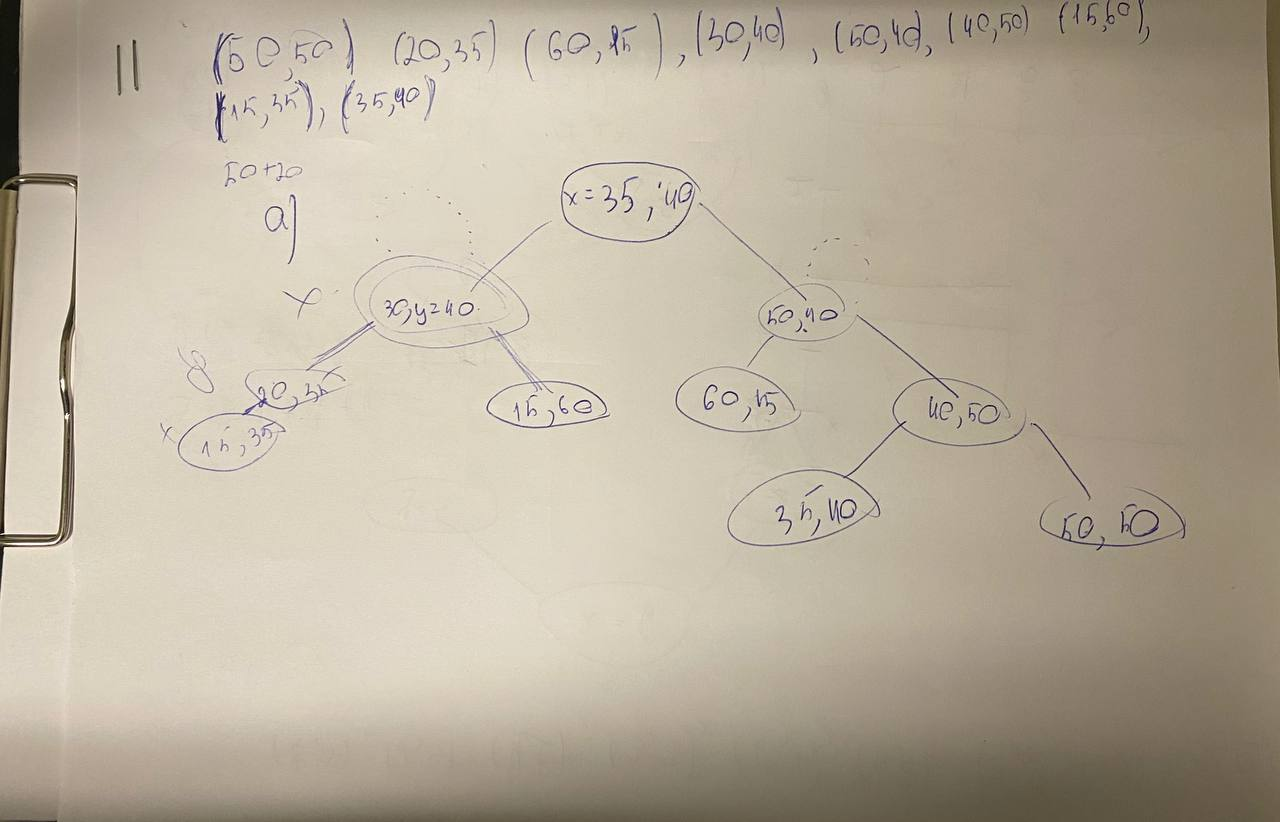 11 (50,50) (20,35) (60,15), (30,40), (50,40), (40,50) (15,60),
(15,35), (35,40)
50+20
a)
x=35, 40
x 30, y=40 50,40
y 20,35 15,60 60,15 40,50
x 15,35
35,40 50, 50